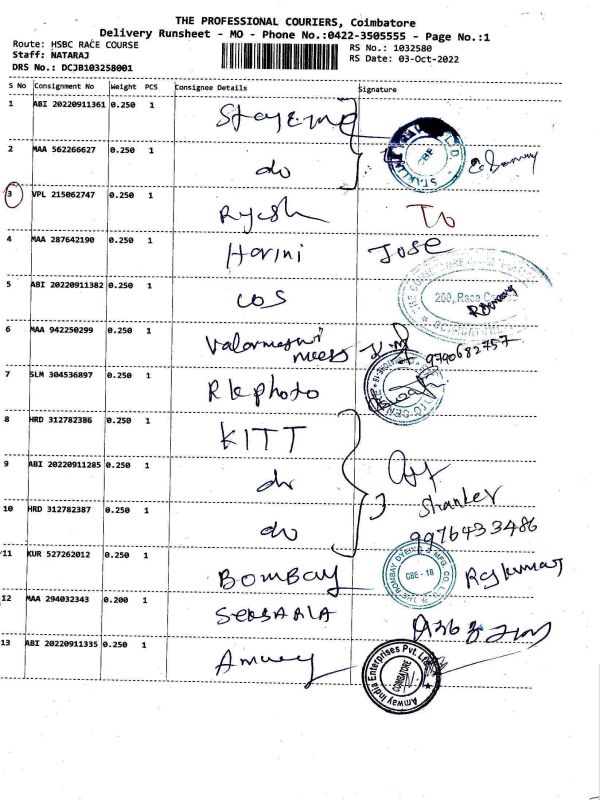 THE PROFESSIONAL COURIERS, Coimbatore
Delivery Runsheet - MO - Phone No.:0422-3505555 - Page No.:1
Route: HSBC RACE COURSE
RS No.: 1032580
Staff: NATARAJ
RS Date: 03-Oct-2022
DRS No.: DCJB103258001
S No Consignment No Weight PCS Consignee Details Signature
1 ABI 20220911361 0.250 1
2 MAA 562266627 0.250 1 do
3 VPL 215062747 0.250 1 To
4 MAA 287642190 0.250 1 Harini Jose
5 ABI 20220911382 0.250 1 COS
200, Race
6 MAA 942250299 0.250 1 9790682757
7 SLM 304536897 0.250 1 Rk photo
8 HRD 312782386 0.250 1 KITT
9 ABI 20220911285 0.250 1 do Shanker
10 HRD 312782387 0.250 1 do 9976433486
11 KUR 527262012 0.250 1 BOMBAY Rajkumar
THE BOMBAY DYEING & MFG. CO.
CBE - 18
12 MAA 294032343 0.200 1
13 ABI 20220911335 0.250 1 Amway
Amway India Enterprises Pvt. Ltd.
COIMBATORE